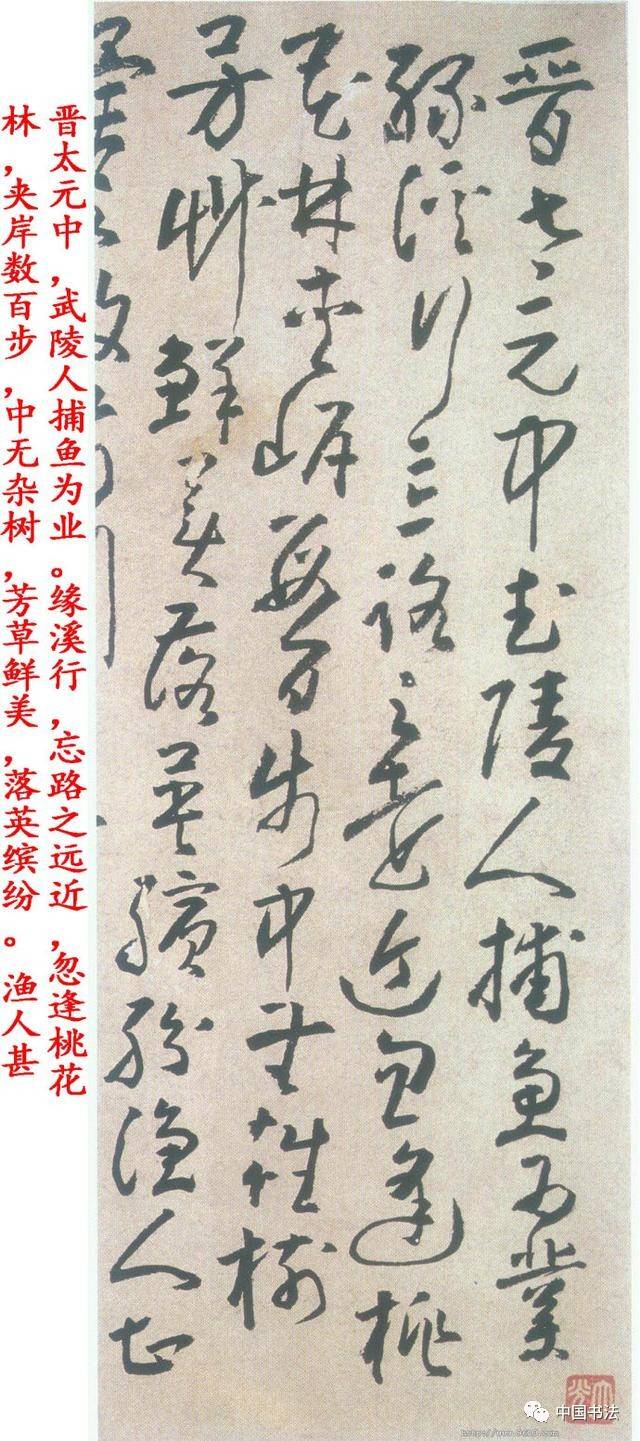 晉太元中武陵人捕魚為業
緣溪行忘路之遠近忽逢桃
花林夾岸數百步中無雜樹
芳草鮮美落英繽紛漁人甚
晋太元中，武陵人捕鱼为业。缘溪行，忘路之远近，忽逢桃花
林，夹岸数百步，中无杂树，芳草鲜美，落英缤纷。渔人甚
中国书法
http://www.9610.com